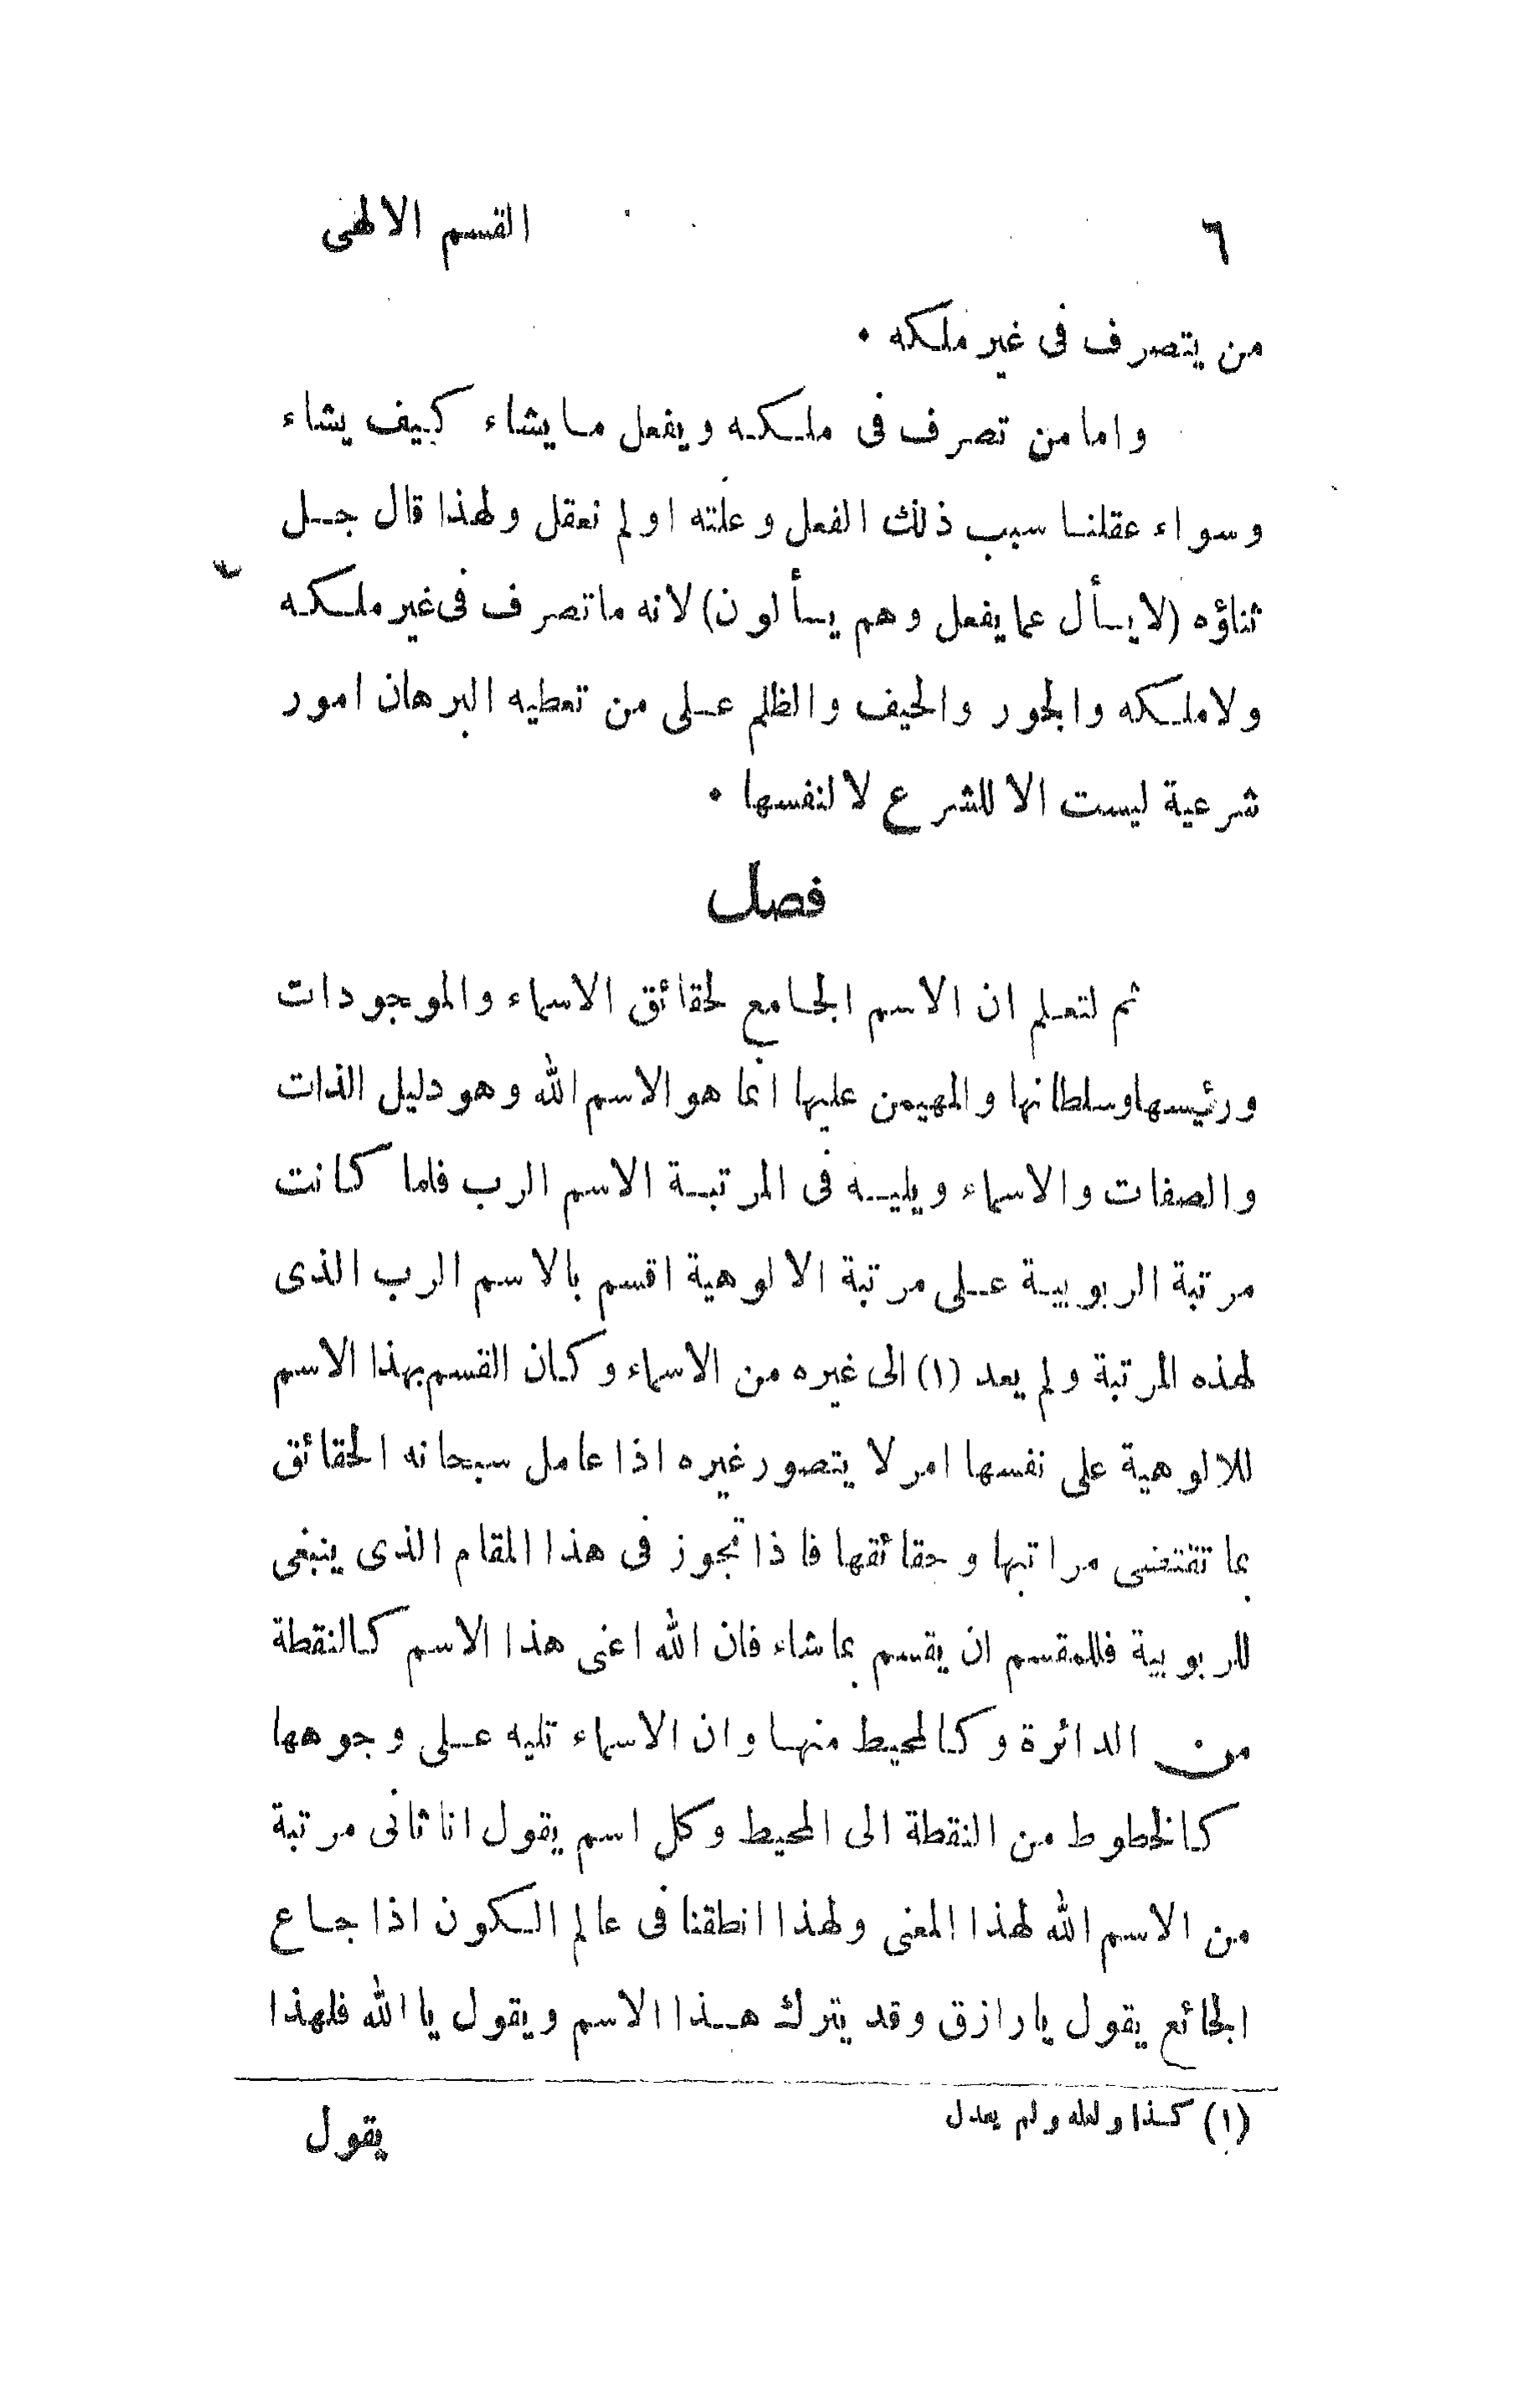 ٦
القسم الالهى
من يتصرف فى غير ملكه •
واما من تصرف فى ملكه ويفعل ما يشاء كيف يشاء
وسواء عقلنا سبب ذلك الفعل وعلته اولم نعقل ولهذا قال جل
ثناؤه (لا يسأل عما يفعل وهم يسألون) لانه ما تصرف فى غير ملكه
ولا ملكه والجور والحيف والظلم على من تعطيه البرهان امور
شرعية ليست الا للشرع لا لنفسها •
فصل
ثم لتعلم ان الاسم الجامع لحقائق الاسماء والموجودات
ورئيسها وسلطانها والمهيمن عليها انما هو الاسم الله وهو دليل الذات
والصفات والاسماء ويليه فى المرتبة الاسم الرب فلما كانت
مرتبة الربوبية على مرتبة الالوهية اقسم بالاسم الرب الذى
لهذه المرتبة ولم يعد (١) الى غيره من الاسماء وكان القسم بهذا الاسم
للالوهية على نفسها امر لا يتصور غيره اذا عامل سبحانه الحقائق
بما تقتضى مراتبها وحقائقها فاذا تجوز فى هذا المقام الذى ينبغى
للربوبية فللمقسم ان يقسم بما شاء فان الله اعنى هذا الاسم كالنقطة
من الدائرة وكالمحيط منها وان الاسماء تليه على وجوهها
كالخطوط من النقطة الى المحيط وكل اسم يقول انا ثانى مرتبة
من الاسم الله لهذا المعنى ولهذا انطقنا فى عالم الكون اذا جاع
الجائع يقول يا رازق وقد يترك هذا الاسم ويقول يا الله فلهذا
(١) كذا ولعله ولم يعدل
يقول